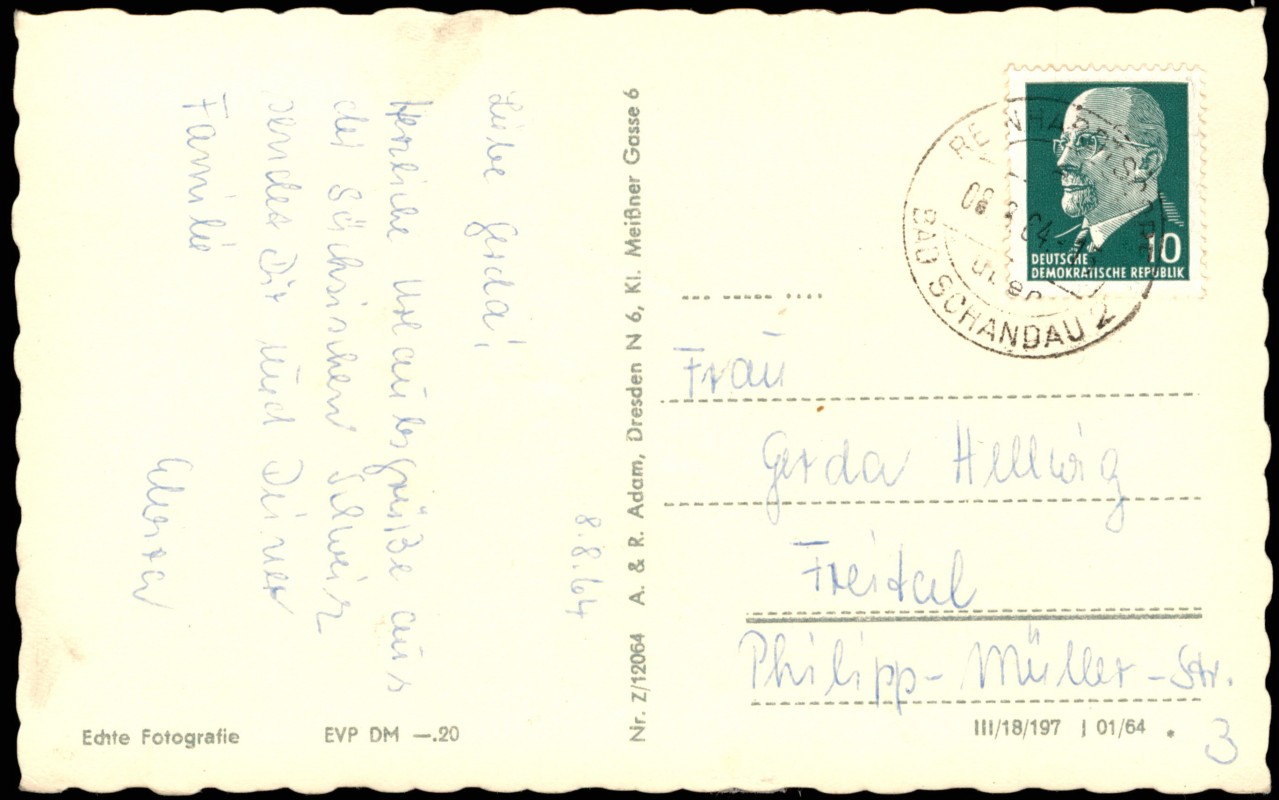 8.8.64
Liebe Gerda!
Herzliche Urlaubsgrüße aus
der Sächsischen Schweiz
sendet Dir und Deiner
Familie
Nr. Z/12064 A. & R. Adam, Dresden N 6, Kl. Meißner Gasse 6
Echte Fotografie
EVP DM —.20
BAD SCHANDAU 2
10
DEUTSCHE
DEMOKRATISCHE REPUBLIK
Frau
Gerda Hellwig
Freital
Philipp-Müller-Str.
3
III/18/197 J 01/64